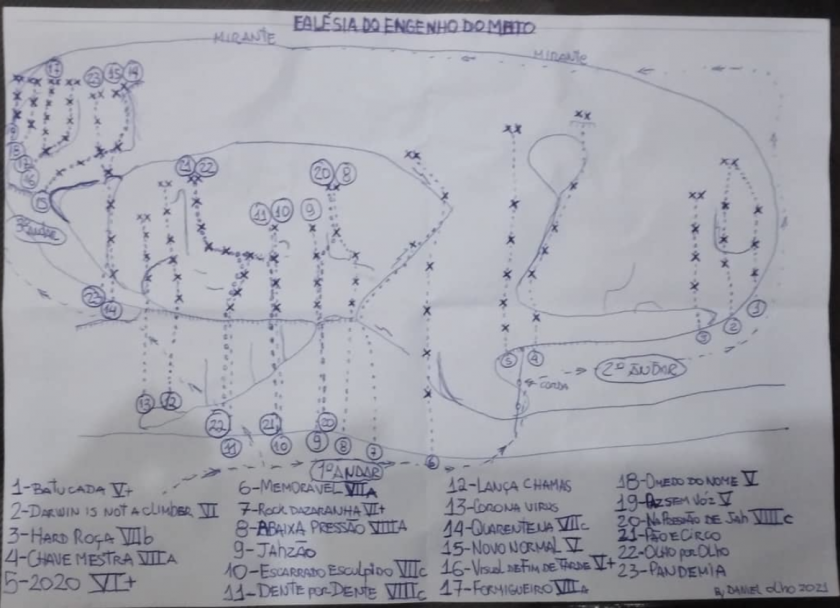 FALÉSIA DO ENGENHO DO MATO
MIRANTE
MIRANTE
17 23 15 14
18
17
16
15
3º ANDAR
21 22
20 8
11 10 9
23 14
1
2
3
5 4
2º ANDAR
CORDA
13 12
22 21 20
11 10 9 8 7
6
1º ANDAR
1-BATUCADA V+
2-DARWIN IS NOT A CLIMBER VI
3-HARD ROÇA VIIb
4-CHAVE MESTRA VIIIA
5-2020 VI+
6-MEMORÁVEL VIIA
7-ROCK DAZARANHA VI+
8-ABAIXA PRESSÃO VIIIA
9-JAHZÃO
10-ESCARRADO ESCULPIDO VIIc
11-DENTE POR DENTE VIIIc
12-LANÇA CHAMAS
13-CORONA VIRUS
14-QUARENTENA VIIc
15-NOVO NORMAL V
16-VISUAL DE FIM DE TARDE V+
17-FORMIGUEIRO VIIA
18-O MEDO DO NOME V
19-PAZ SEM VÓZ V
20-NA PRESSÃO DE JAH VIIIc
21-PÃO E CIRCO
22-OLHO POR OLHO
23-PANDEMIA
By DANIEL OLHO 2021